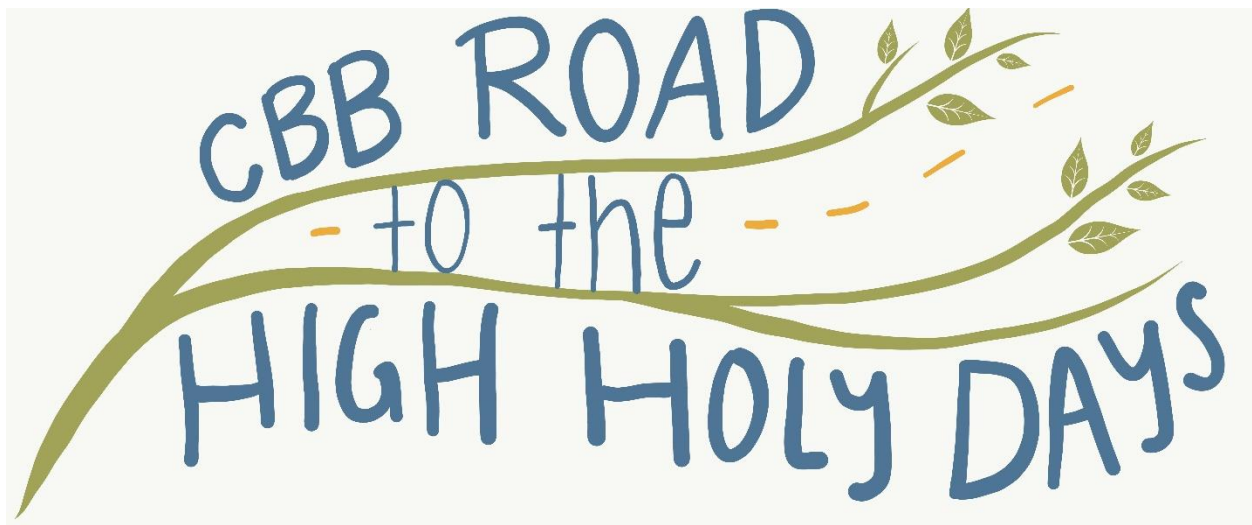 CBB ROAD
to the
HIGH HOLY DAYS